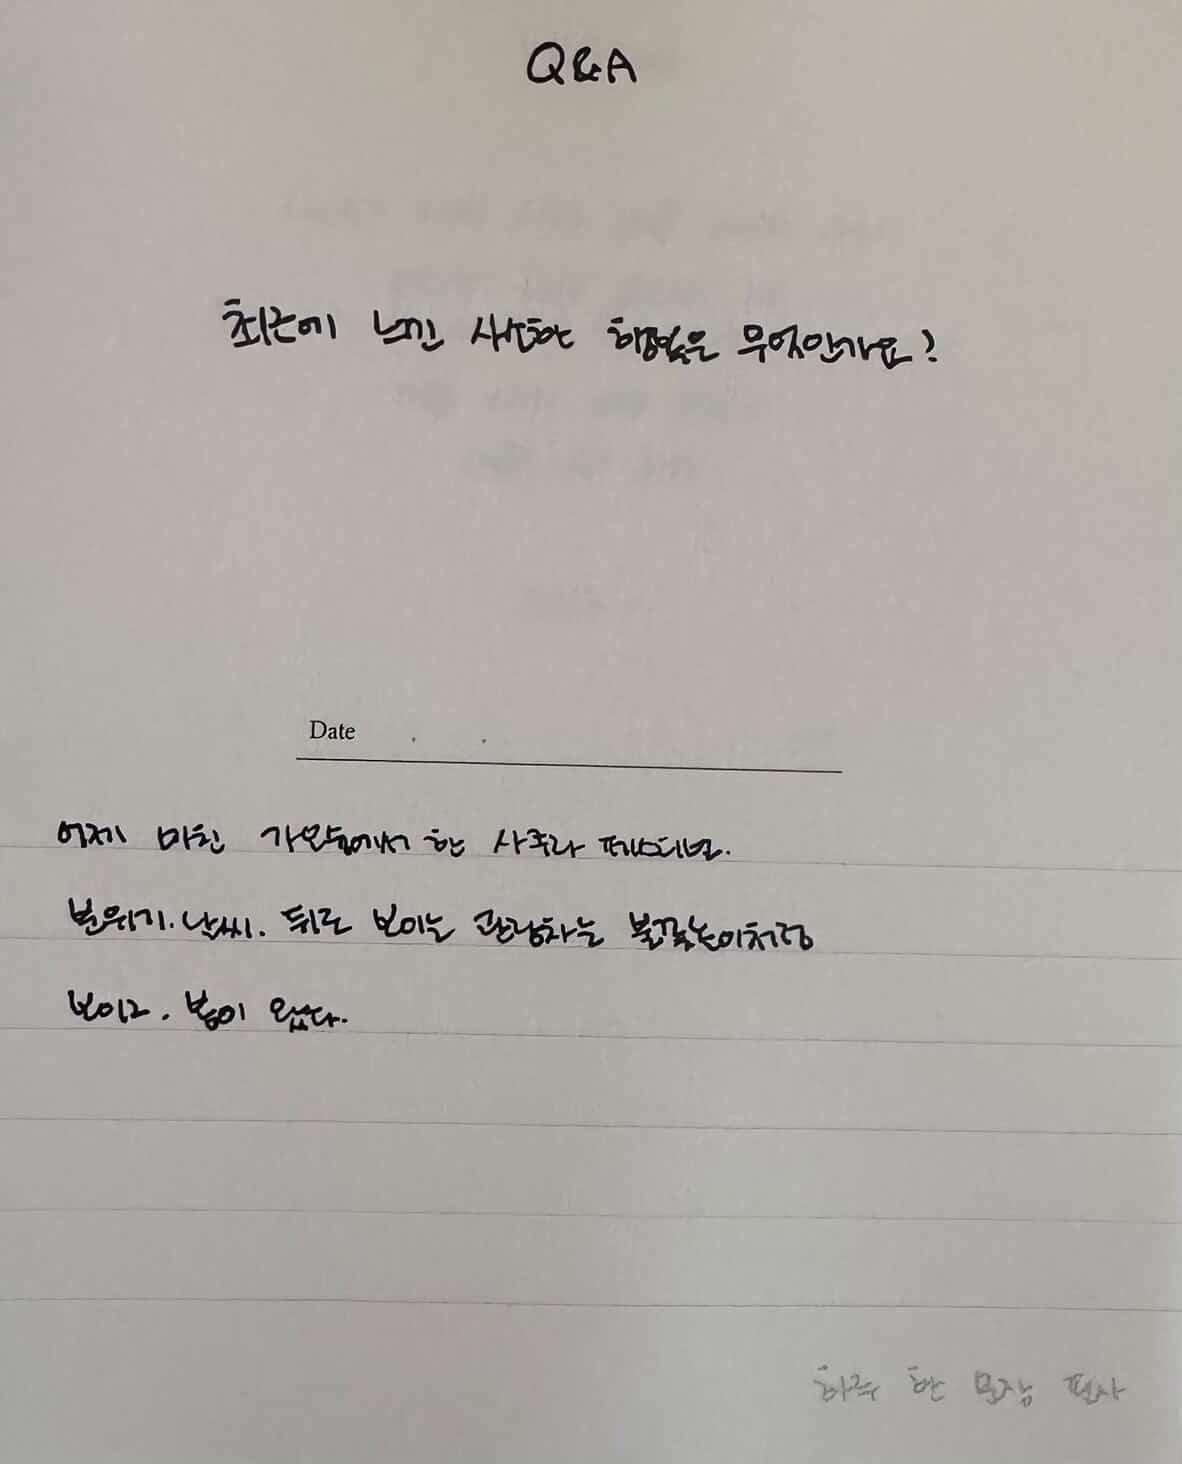 Q&A
최근에 느낀 사소한 행복은 무엇인가요?
Date . .
어제 마친 가오슝에서 한 사쿠라 페스티벌.
분위기. 날씨. 뒤로 보이는 관람차는 불꽃놀이처럼
보이고. 봄이 왔다.
하루 한 문장 필사